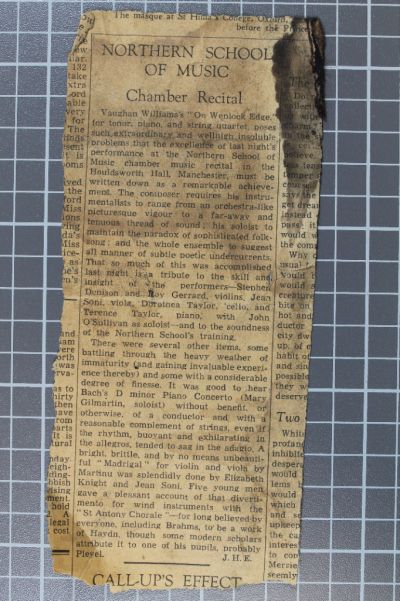 The masque at St Hilda's College, Oxford,
before the Prince
NORTHERN SCHOOL
OF MUSIC
Chamber Recital
Vaughan Williams's "On Wenlock Edge,"
for tenor, piano, and string quartet, poses
such extraordinary and wellnigh insoluble
problems that the excellence of last night's
performance at the Northern School of
Music chamber music recital in the
Houldsworth Hall, Manchester, must be
written down as a remarkable achieve-
ment. The composer requires his instru-
mentalists to range from an orchestra-like
picturesque vigour to a far-away and
tenuous thread of sound; his soloist to
maintain the paradox of sophisticated folk-
song; and the whole ensemble to suggest
all manner of subtle poetic undercurrents.
That so much of this was accomplished
last night is a tribute to the skill and
insight of the performers—Stephen
Denison and Roy Gerrard, violins, Jean
Soni, viola, Dorothea Taylor, 'cello, and
Terence Taylor, piano, with John
O'Sullivan as soloist—and to the soundness
of the Northern School's training.
There were several other items, some
battling through the heavy weather of
immaturity (and gaining invaluable experi-
ence thereby) and some with a considerable
degree of finesse. It was good to hear
Bach's D minor Piano Concerto (Mary
Gilmartin, soloist) without benefit, or
otherwise, of a conductor and with a
reasonable complement of strings, even if
the rhythm, buoyant and exhilarating in
the allegros, tended to sag in the adagio. A
bright, brittle, and by no means unbeauti-
ful "Madrigal" for violin and viola by
Martinu was splendidly done by Elizabeth
Knight and Jean Soni. Five young men
gave a pleasant account of that diverti-
mento for wind instruments with the
"St Antony Chorale"—for long believed by
everyone, including Brahms, to be a work
of Haydn, though some modern scholars
attribute it to one of his pupils, probably
Pleyel. J. H. E.
CALL-UP'S EFFECT